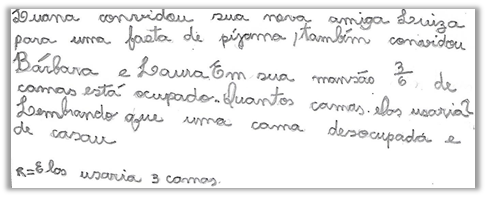 Luana convidou sua nova amiga Luiza
para uma faeta de pijama, também convidou
Bárbara e Laura Em sua mansão 3/6 de
camas está ocupado.. Quantos camas. elas usaria?
Lembrando que uma cama desocupada e
de casau
R= Elas usaria 3 camas.